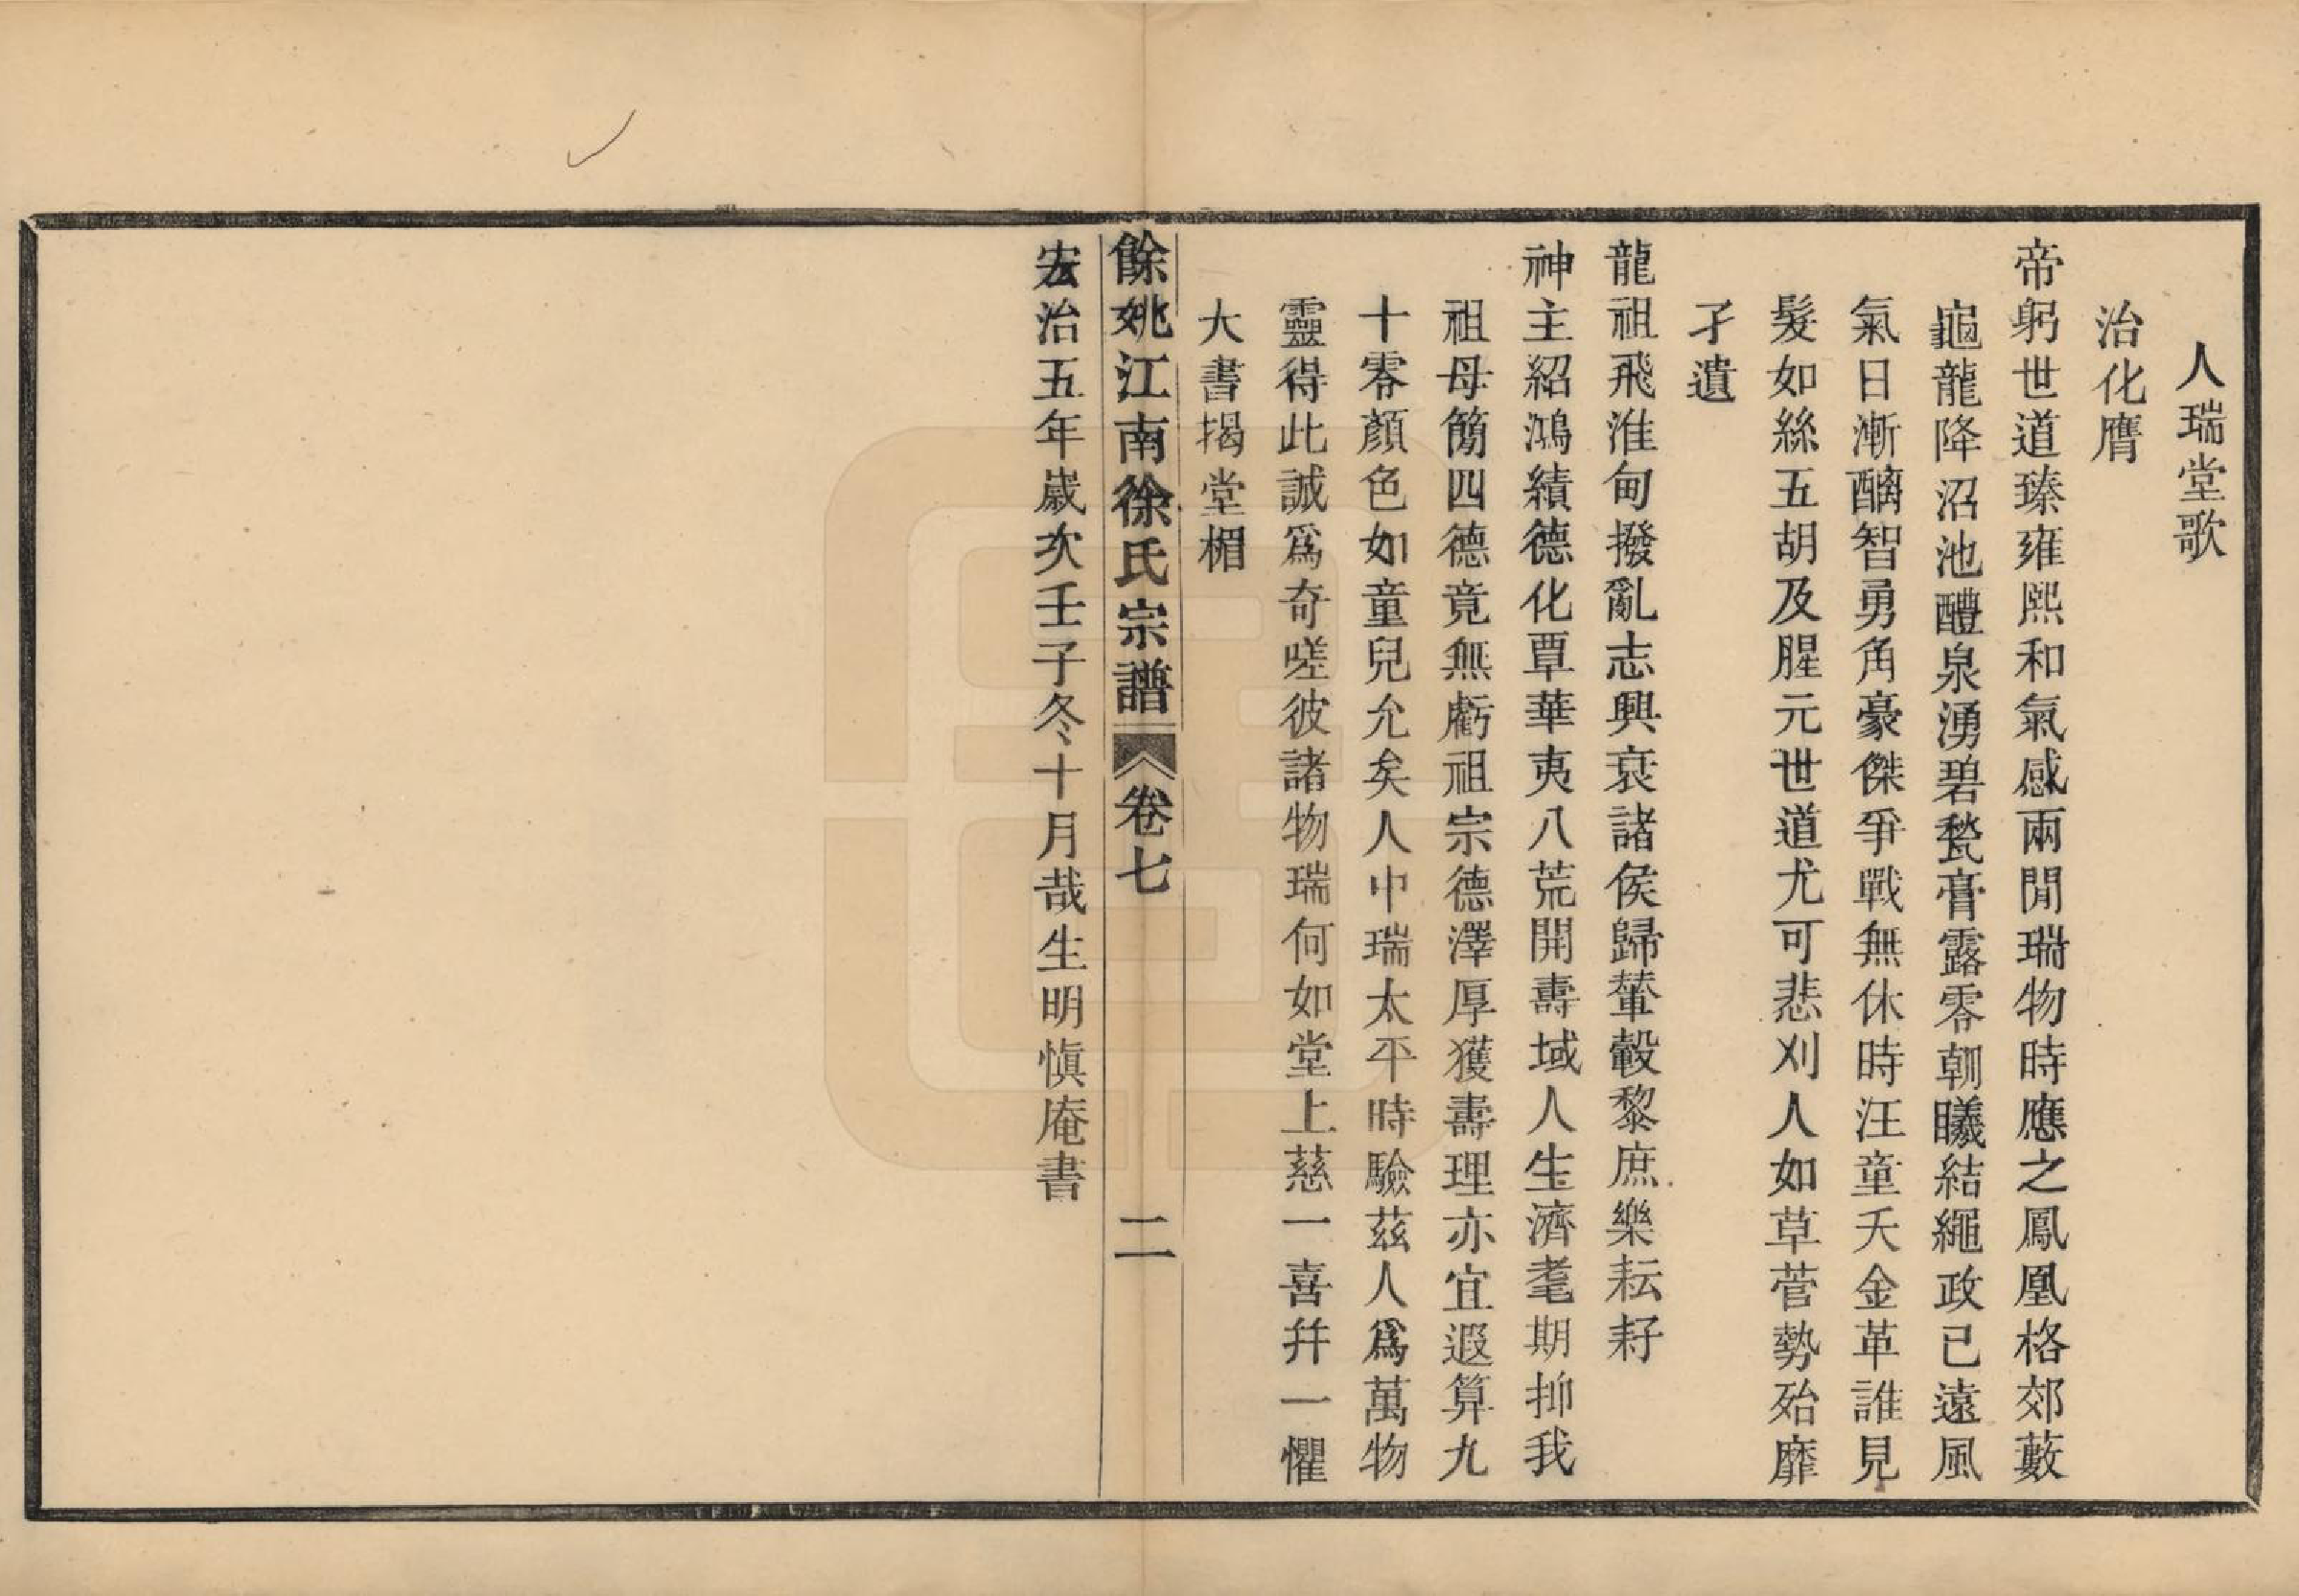 人瑞堂歌
治化膺
帝躬世道臻雍熙和氣感兩閒瑞物時應之鳳凰格郊藪
龜龍降沼池醴泉湧碧甃膏露零朝曦結繩政已遠風
氣日漸醨智勇角豪傑爭戰無休時汪童夭金革誰見
髮如絲五胡及腥元世道尤可悲刈人如草菅勢殆靡
孑遺
龍祖飛淮甸撥亂志興衰諸侯歸輦轂黎庶樂耘耔
神主紹鴻績德化覃華夷八荒開壽域人生濟耄期抑我
祖母簡四德竟無虧祖宗德澤厚獲壽理亦宜遐算九
十零顏色如童兒允矣人中瑞太平時驗茲人爲萬物
靈得此誠爲奇嗟彼諸物瑞何如堂上慈一喜幷一懼
大書揭堂楣
餘姚江南徐氏宗譜 卷七 二
宏治五年歲次壬子冬十月哉生明愼庵書